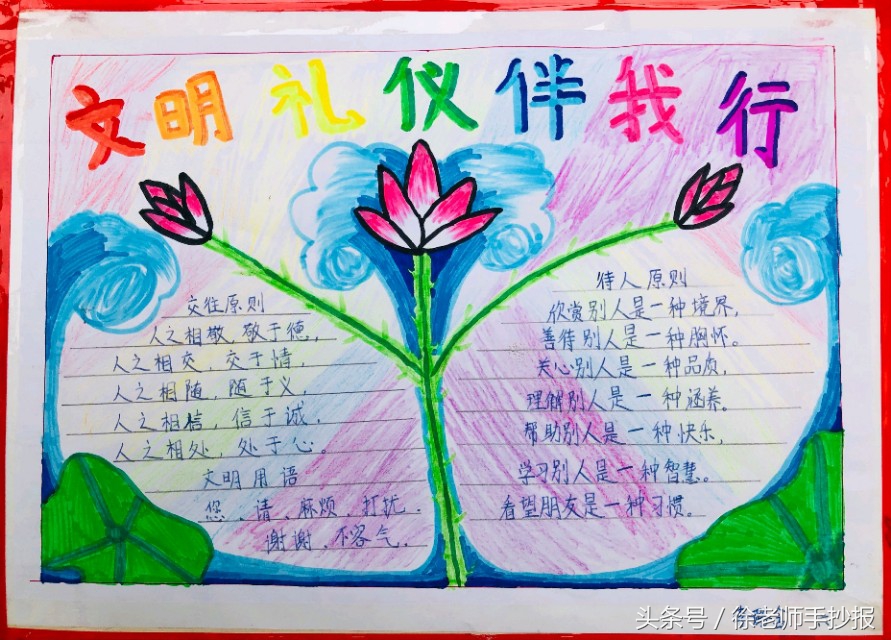 文明礼仪伴我行
交往原则
人之相敬,敬于德,
人之相交,交于情,
人之相随,随于义
人之相信,信于诚,
人之相处,处于心。
文明用语
您、请、麻烦、打扰、
谢谢、不客气、
待人原则
欣赏别人是一种境界,
善待别人是一种胸怀。
关心别人是一种品质,
理解别人是一种涵养。
帮助别人是一种快乐,
学习别人是一种智慧。
看望朋友是一种习惯。
头条号/徐老师手抄报